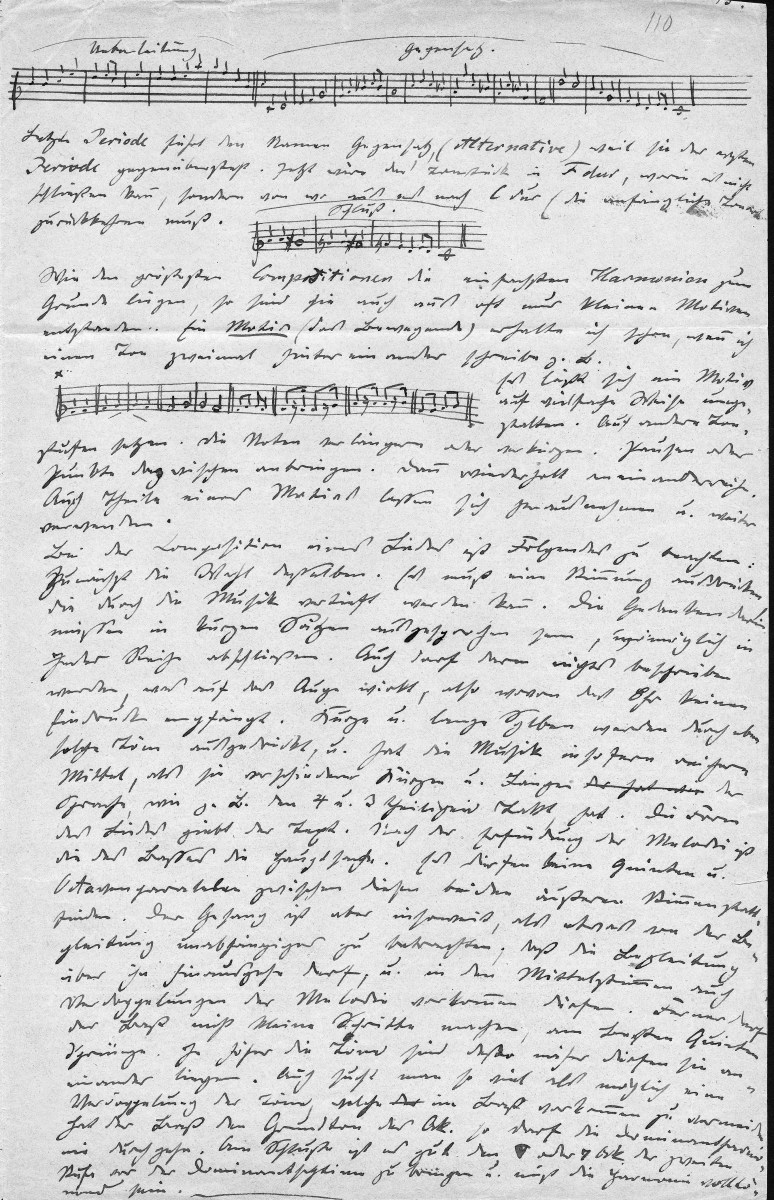 110
Ueberleitung Gegensatz.
Letzte Periode führt den Namen Gegensatz, (Alternative) weil sie der ersten
Periode gegenübersteht. Jetzt wäre das Tonstück in F dur, worin es nicht
schließen kann, sondern von wo aus es nach C dur (die anfängliche Tonart
zurückkehren muß.
Schluß.
Wie den größesten Compositionen die einfachsten Harmonien zum
Grunde liegen, so sind sie auch aus oft nur kleinen Motiven
entstanden. Ein Motiv (das Bewegende) erhalte ich schon, wenn ich
einen Ton zweimal hintereinander schreibe z. B.
Es läßt sich ein Motiv
auf vielfache Weise umge-
stalten. Auf andere Ton-
stufen setzen. die Noten verlängern oder verkürzen. Pausen oder
Punkte dazwischen anbringen. dann wiederholt aneinanderreihen.
Auch Theile eines Motivs lassen sich herausnehmen u. weiter
verwenden.
Bei der Composition eines Liedes ist Folgendes zu beachten:
Zunächst die Wahl desselben. Es muß eine Stimmung ausdrücken
die durch die Musik vertieft werden kann. Die Gedanken darin
müssen in kurzen Sätzen ausgesprochen sein, womöglich in
jeder Reihe abschließen. Auch darf darin nichts beschrieben
werden, was auf das Auge wirkt, also wovon das Ohr keinen
Eindruck empfängt. Kurze u. lange Sylben werden durch eben
solche Töne ausgedrückt, u. hat die Musik insofern reichere
Mittel, als sie verschiedene Kürzen u. Längen der
Sprache, wie z. B. den 4 u. 3 theiligen Takt hat. Die Form
des Liedes giebt der Text. Nach der Erfindung der Melodie ist
die des Basses die Hauptsache. Es dürfen keine Quinten u.
Octavenparallelen zwischen diesen beiden äußeren Stimmen statt-
finden. Der Gesang ist aber insoweit, als etwas von der Be-
gleitung unabhängiges zu betrachten, daß die Begleitung
über ihn hinausgehn darf, u. in den Mittelstimmen auch
Verdoppelungen der Melodie vorkommen dürfen. Ferner darf
der Baß nicht kleine Schritte machen, am besten Quinten
Sprünge. Je höher die Töne sind desto näher dürfen sie an-
einander liegen. Auch sucht man so viel als möglich eine
Verdoppelung der Töne, welche im Baß vorkommen zu vermeiden.
Hat der Baß den Grundton des Ak. so darf die
nie durchgehn. Am Schluße ist es gut den oder Ak der zweiten
Stufe vor der Dominantseptime zu bringen u. muß die Harmonie vollkom-
mend sein.